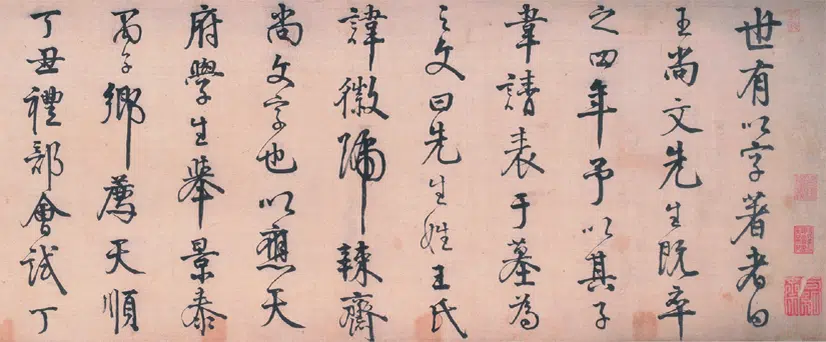 世有以字著者曰
王尚文先生既卒
之四年予以其子
韋請表于墓為
之文曰先生姓王氏
諱徽號辣齋
尚文字也以應天
府學生舉景泰
丙子鄉薦天順
丁丑禮部會試丁